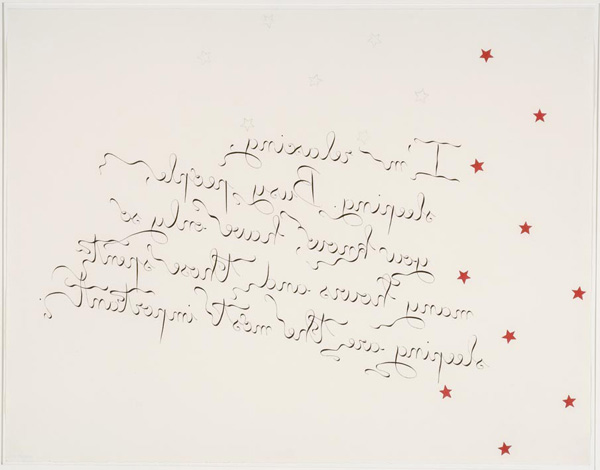 I'm relaxing,
sleeping. Busy people,
you know, have only so
many hours and those spent
sleeping are the most important.